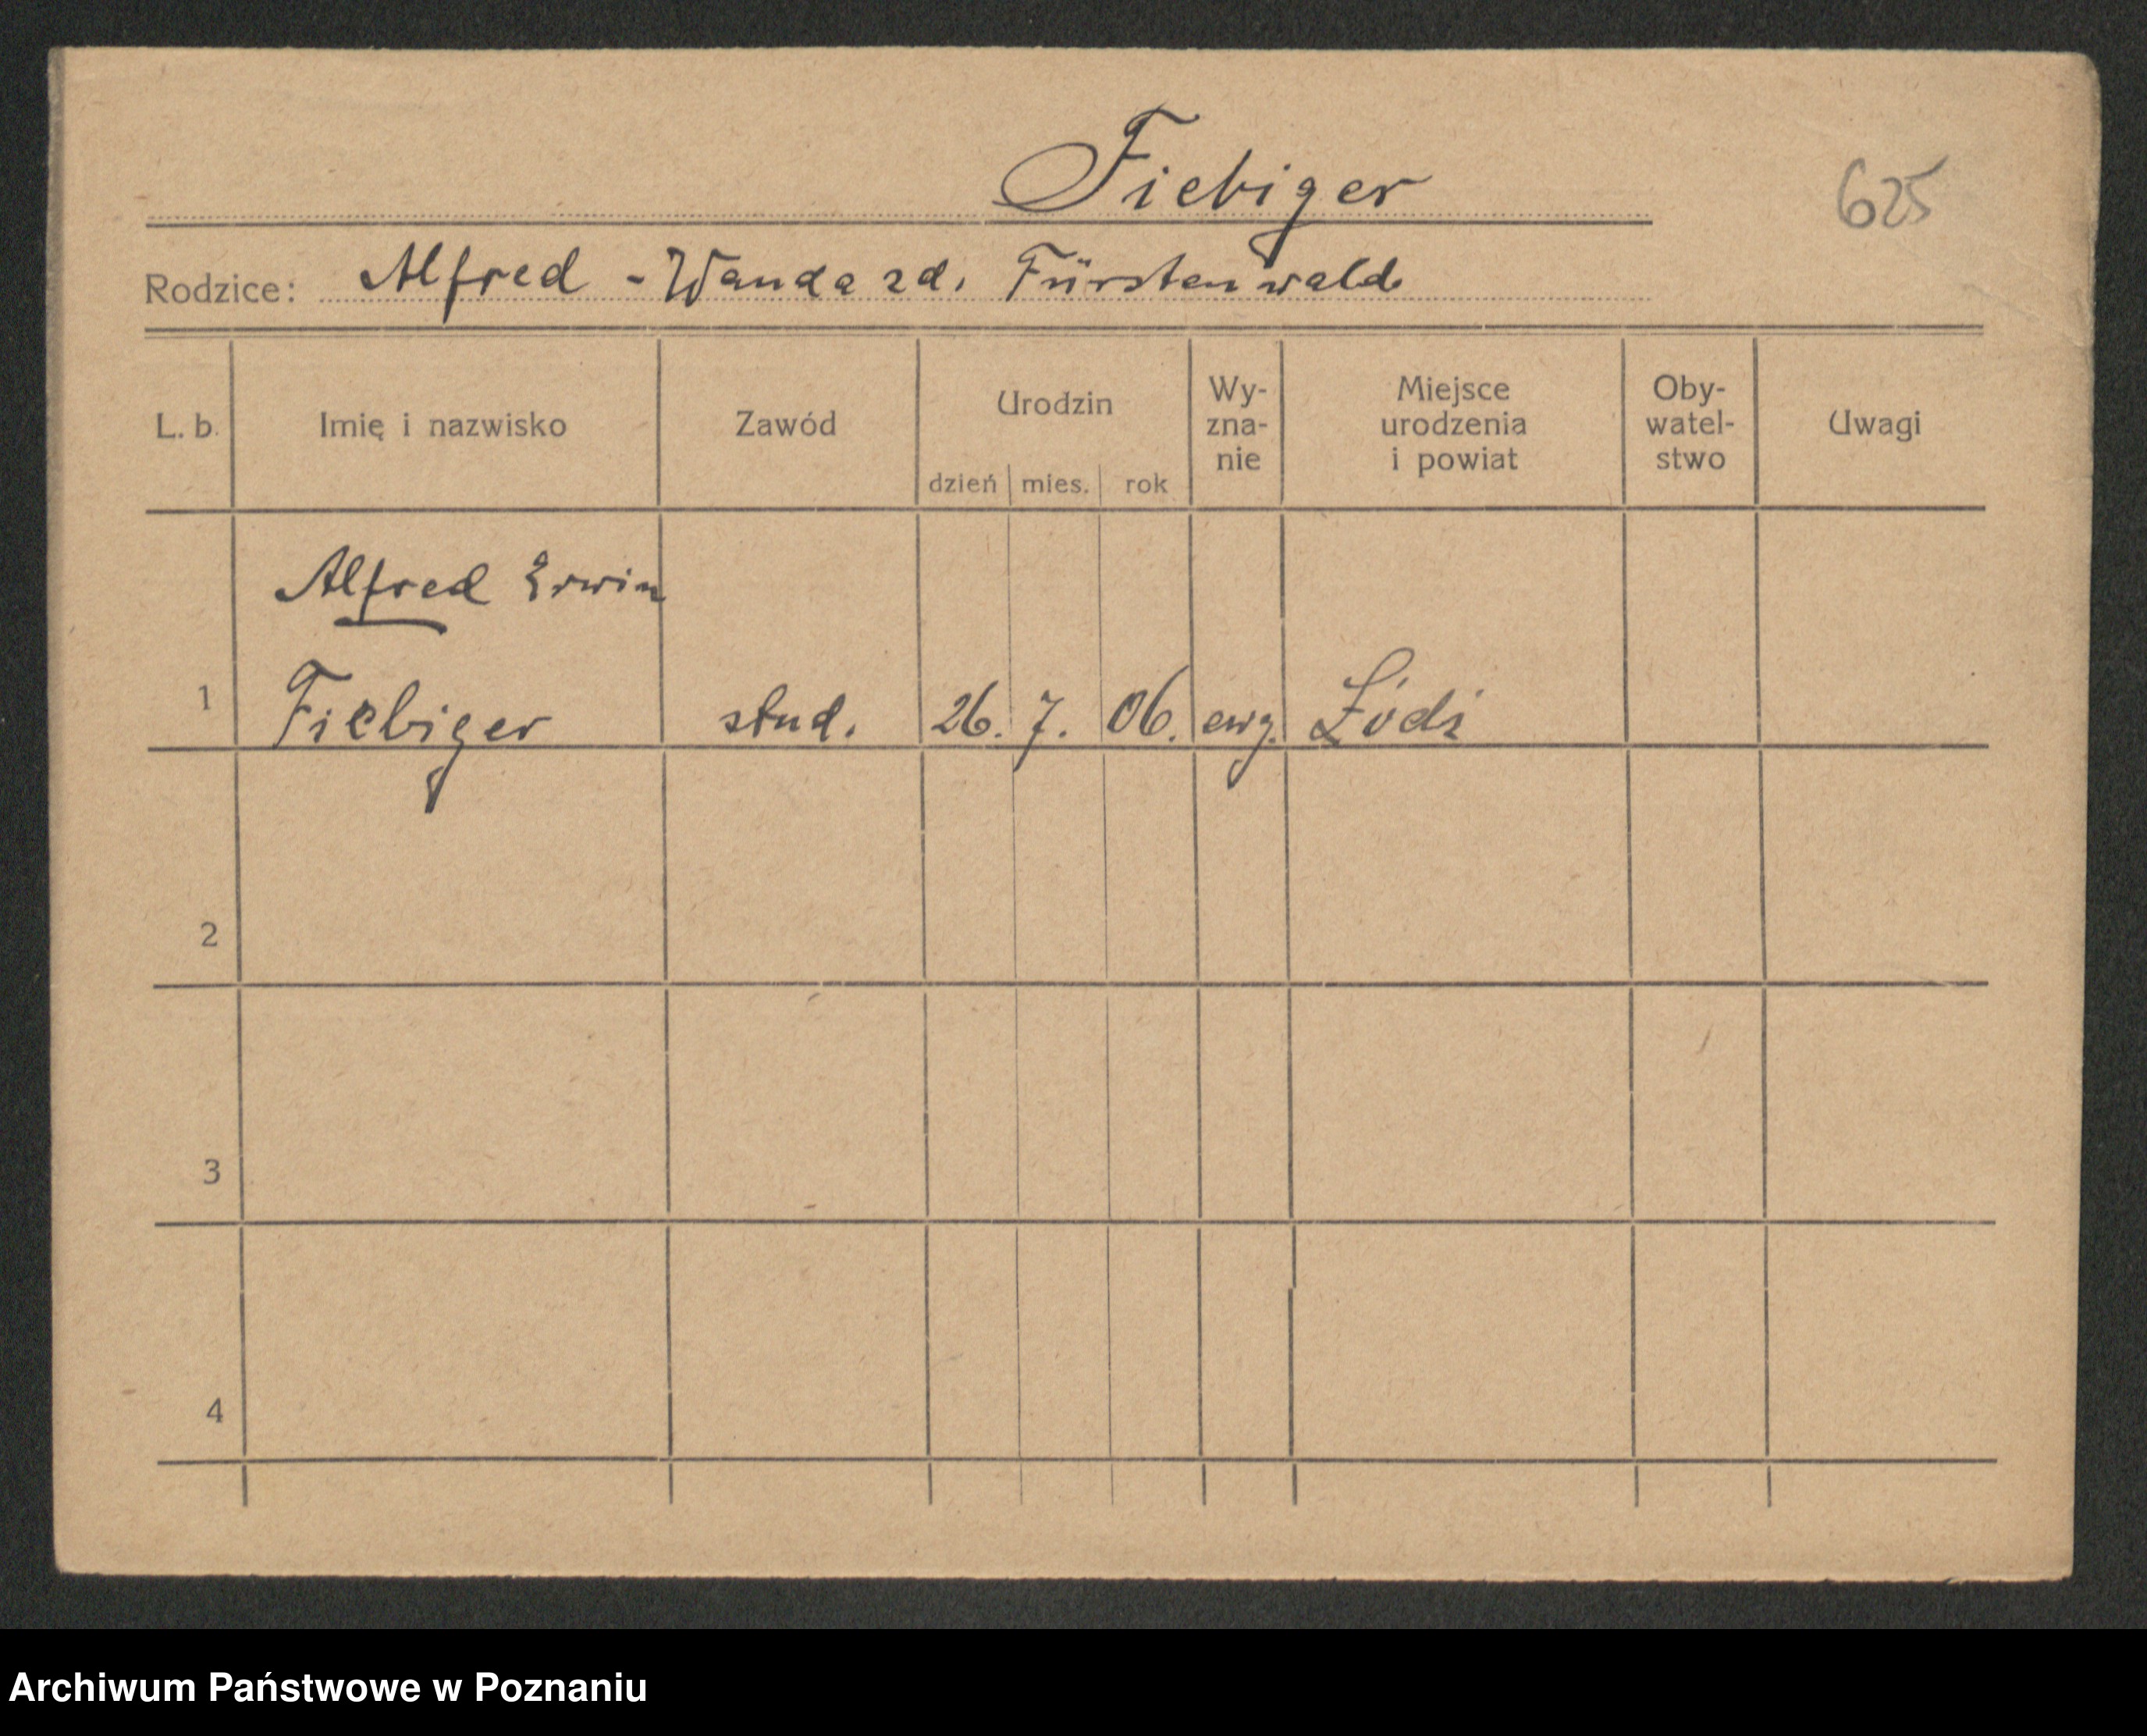 Fiebiger
625
Rodzice: Alfred - Wanda zd. Fürstenwalde
L. b. Imię i nazwisko Zawód Urodzin dzień mies. rok Wy-zna-nie Miejsce urodzenia i powiat Oby-watel-stwo Uwagi
Alfred Erwin
1 Fiebiger stud. 26. 7. 06. ewg. Łódź
2
3
4
Archiwum Państwowe w Poznaniu